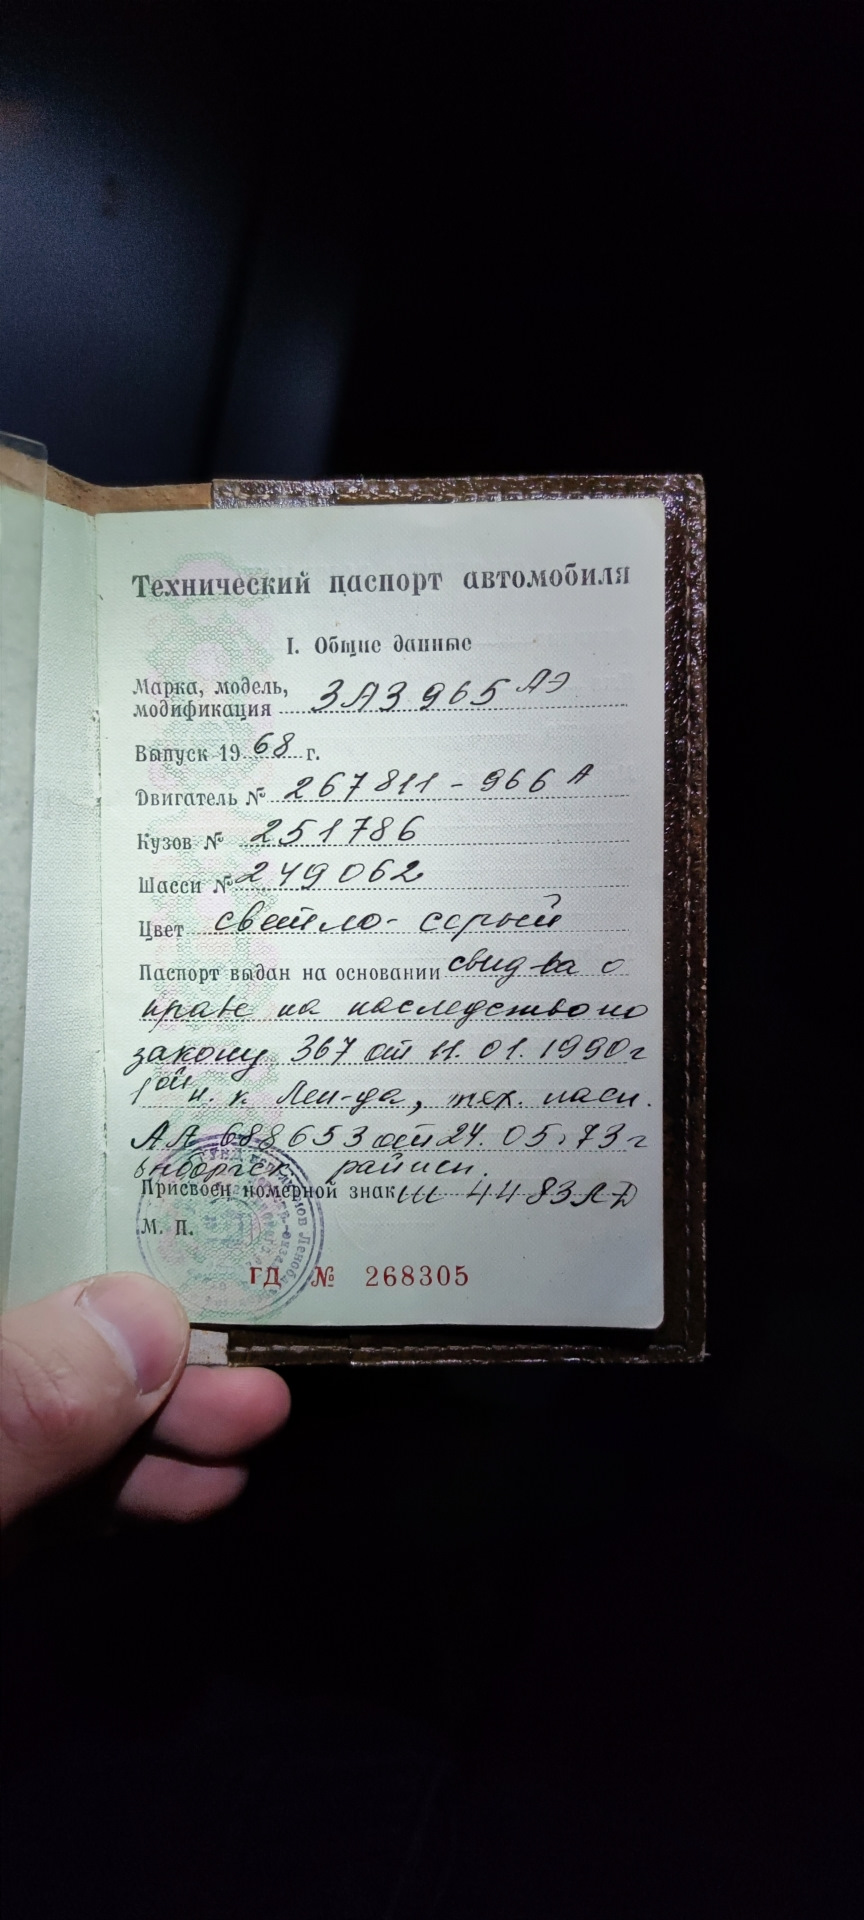 Технический паспорт автомобиля
I. Общие данные
Марка, модель,
модификация ЗАЗ 965 АЭ
Выпуск 1968 г.
Двигатель № 267811 - 966 А
Кузов № 251786
Шасси № 249062
Цвет светло-серый
Паспорт выдан на основании свид-ва о
праве на наследство по
закону 367 от 11.01.1990г
1ой н. к. Лен-да, тех. пасп.
АА 688653 от 24.05.73г
райисп.
Присвоен номерной знак ш 4483ЛД
М. П.
ГД № 268305